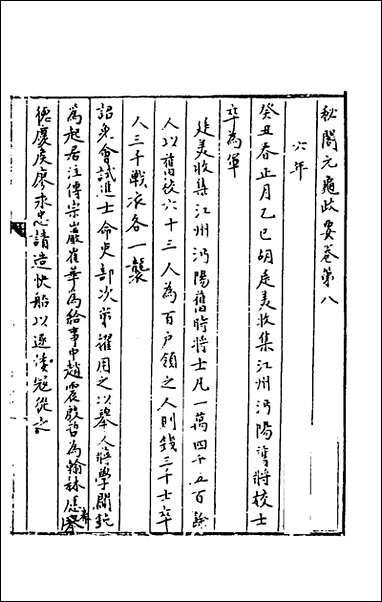 秘閣元龜政要卷第八
六年
癸丑春正月乙巳胡廷美收集江州沔陽舊將校士
卒為軍
廷美收集江州沔陽舊時將士凡一萬四千五百餘
人以舊校六十三人為百戶領之人則錢三千士卒
人三千戰衣各一襲
詔免會試進士命吏部次第擢用之以舉人蔣學閻鈍
為起居注傅宗嚴崔華為給事中趙震殷哲為翰林應奉
德慶侯廖永忠請造快船以逐倭寇從之